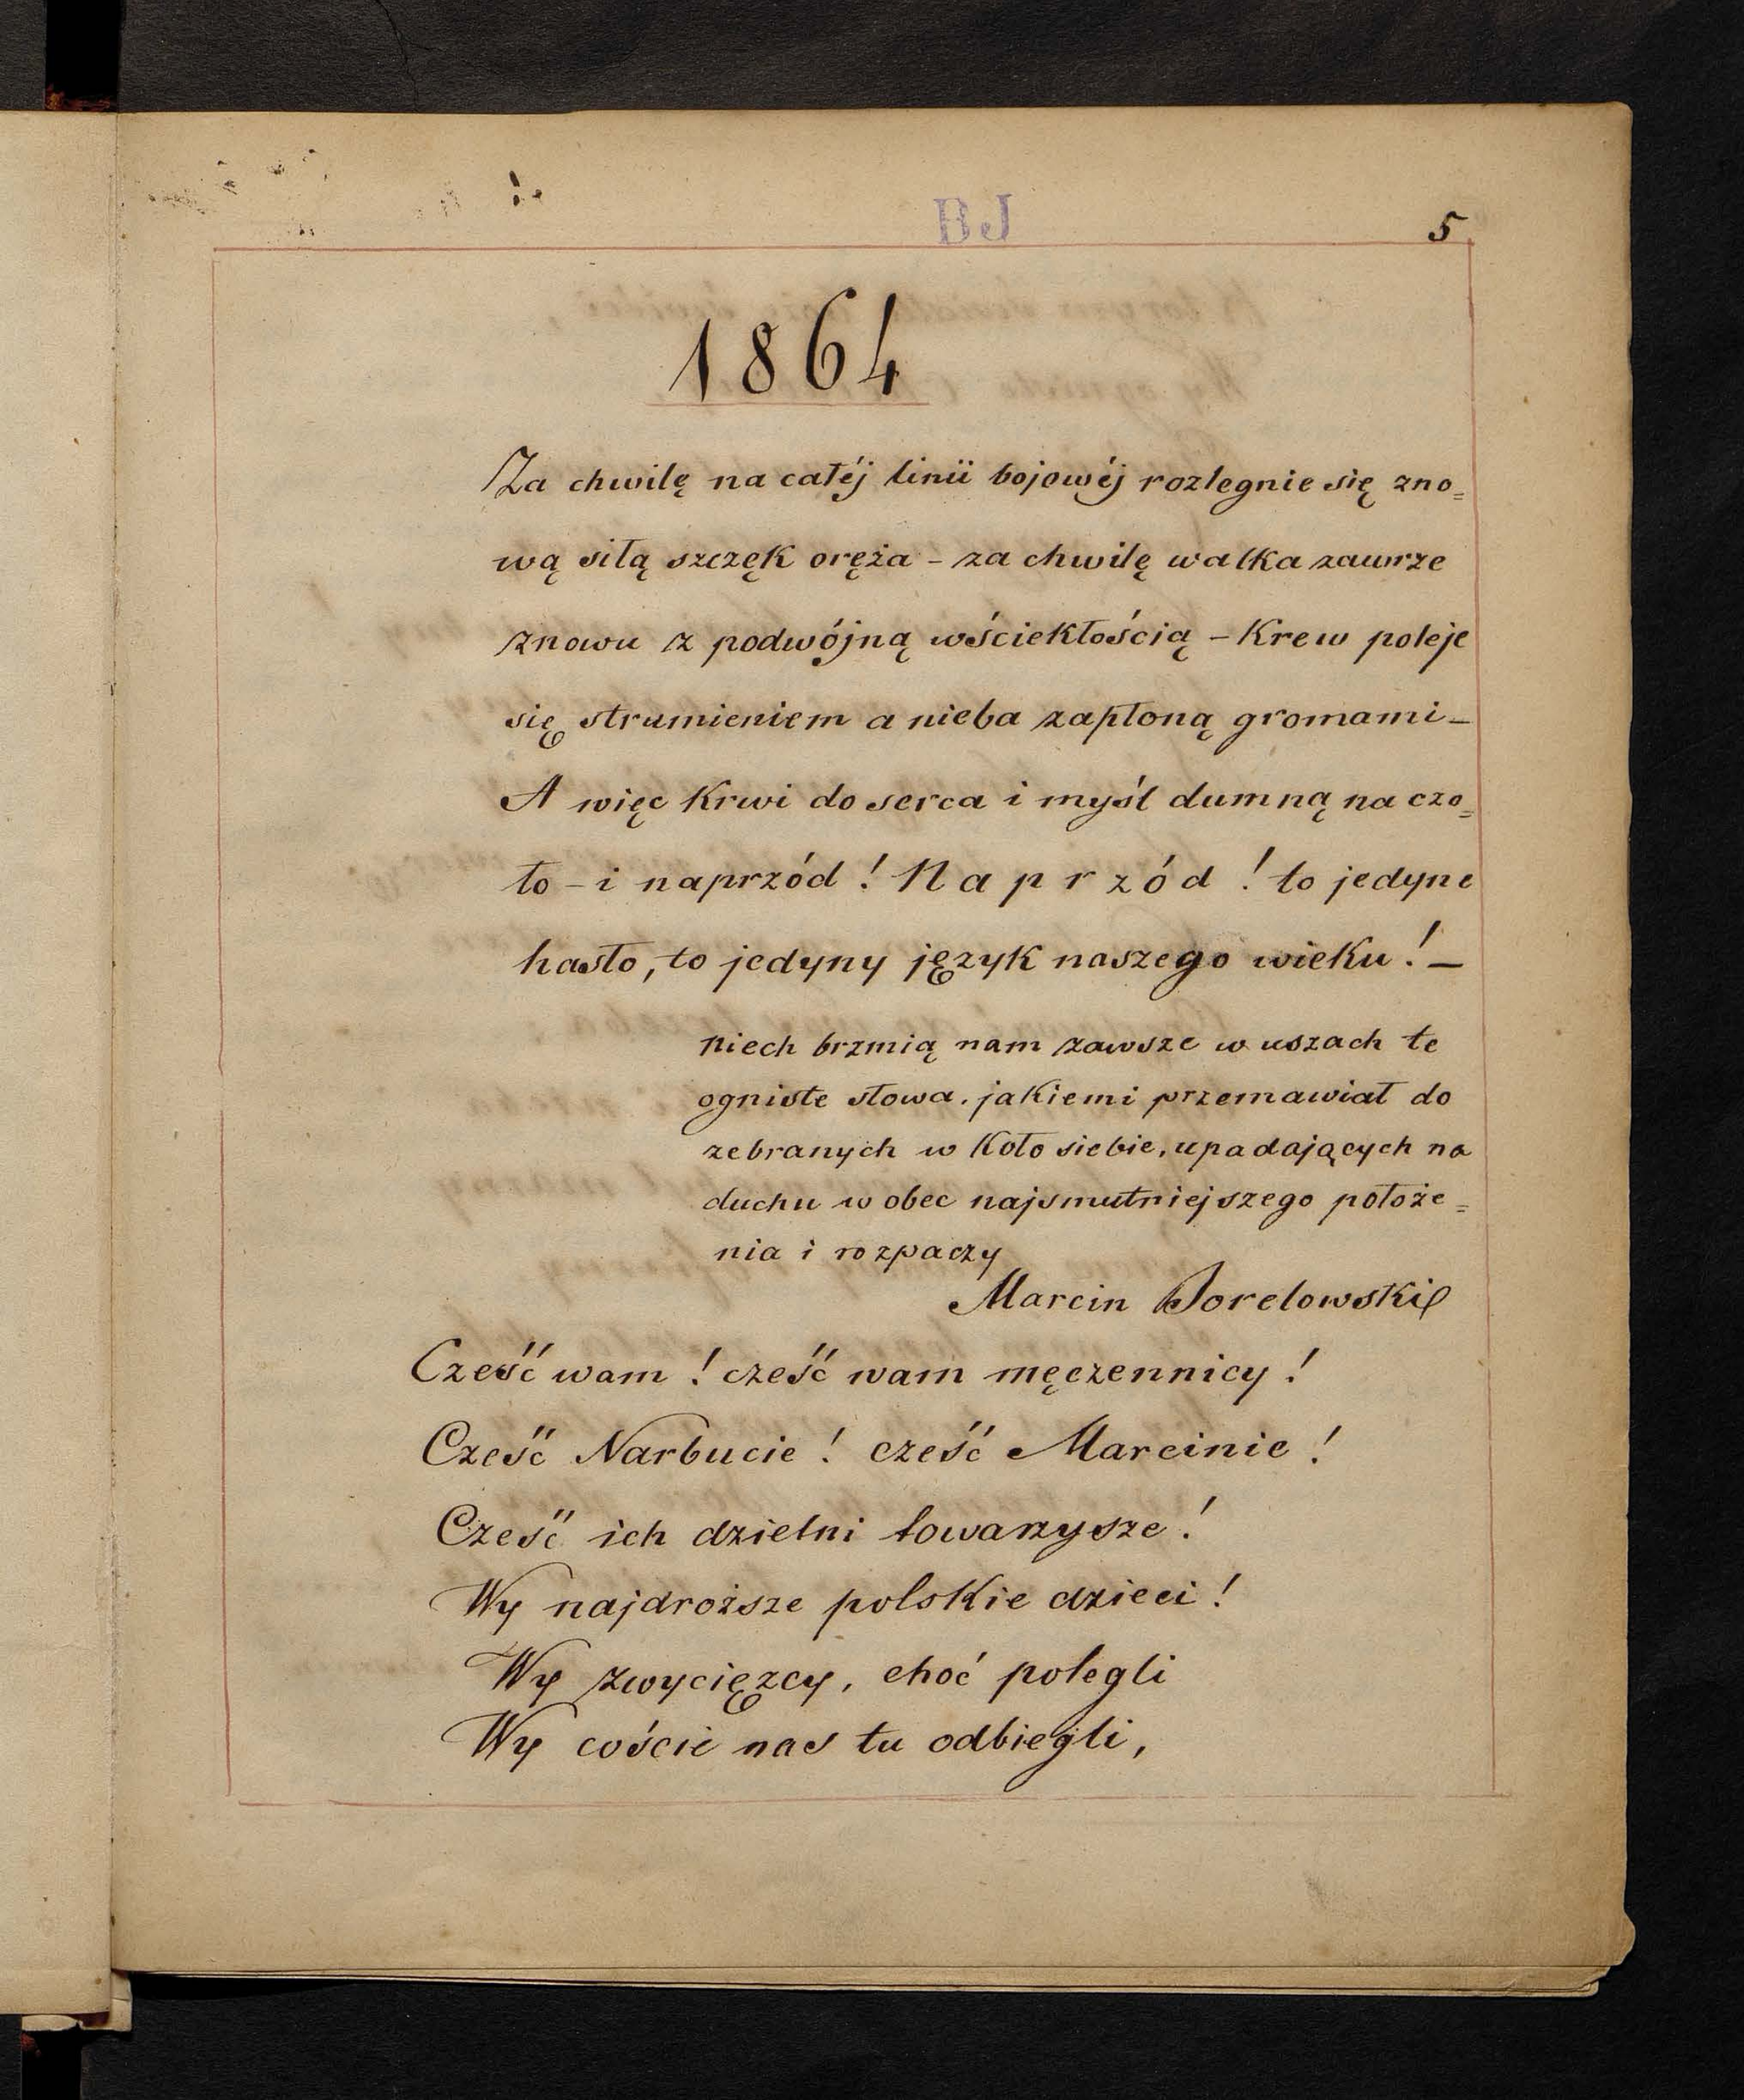 BJ
5
1864
Za chwilę na całéj linii bojowéj rozlegnie się zno=
wą siłą szczęk oręża – za chwilę walka zawrze
znowu z podwójną wściekłością – Krew poleje
się strumieniem a nieba zapłoną gromami –
A więc Krwi do serca i myśl dumną na czo=
ło – i naprzód! Naprzód! to jedyne
hasło, to jedyny język naszego wieku! –
niech brzmią nam zawsze w uszach te
ogniste słowa, jakiemi przemawiał do
zebranych w Koło siebie, upadających na
duchu w obec najsmutniejszego położe=
nia i rozpaczy
Marcin Borelowski
Cześć wam! cześć wam męczennicy!
Cześć Narbucie! cześć Marcinie!
Cześć ich dzielni towarzysze!
Wy najdroższe polskie dzieci!
Wy zwycięzcy, choć polegli
Wy coście nas tu odbiegli,